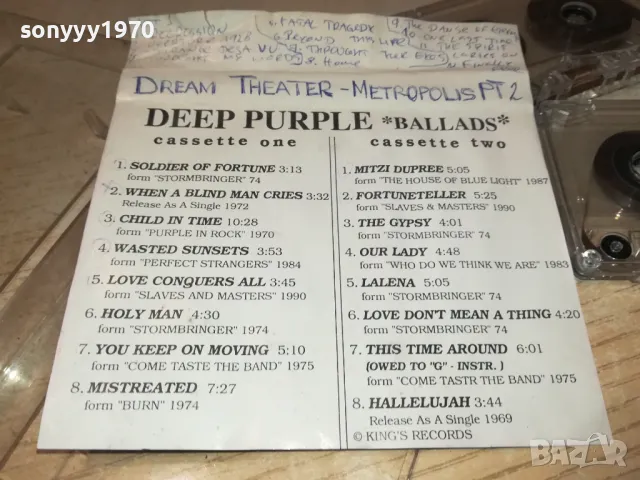 sonyyy1970
5. FATAL TRAGEDY
6. BEYOND THIS LIFE
7. THROUGH
8. Home
9. THE DANCE OF
10. ONE LAST TIME
11. THE SPIRIT
CARRIES ON
DREAM THEATER - METROPOLIS PT 2
DEEP PURPLE *BALLADS*
cassette one
1. SOLDIER OF FORTUNE 3:13
form "STORMBRINGER" 74
2. WHEN A BLIND MAN CRIES 3:32
Release As A Single 1972
3. CHILD IN TIME 10:28
form "PURPLE IN ROCK" 1970
4. WASTED SUNSETS 3:53
form "PERFECT STRANGERS" 1984
5. LOVE CONQUERS ALL 3:45
form "SLAVES AND MASTERS" 1990
6. HOLY MAN 4:30
form "STORMBRINGER" 1974
7. YOU KEEP ON MOVING 5:10
form "COME TASTE THE BAND" 1975
8. MISTREATED 7:27
form "BURN" 1974
cassette two
1. MITZI DUPREE 5:05
form "THE HOUSE OF BLUE LIGHT" 1987
2. FORTUNETELLER 5:25
form "SLAVES & MASTERS" 1990
3. THE GYPSY 4:01
form "STORMBRINGER" 74
4. OUR LADY 4:48
form "WHO DO WE THINK WE ARE" 1983
5. LALENA 5:05
form "STORMBRINGER" 74
6. LOVE DON'T MEAN A THING 4:20
form "STORMBRINGER" 74
7. THIS TIME AROUND 6:01
(OWED TO "G" - INSTR. )
form "COME TASTR THE BAND" 1975
8. HALLELUJAH 3:44
Release As A Single 1969
© KING'S RECORDS
BAZAR
.bg